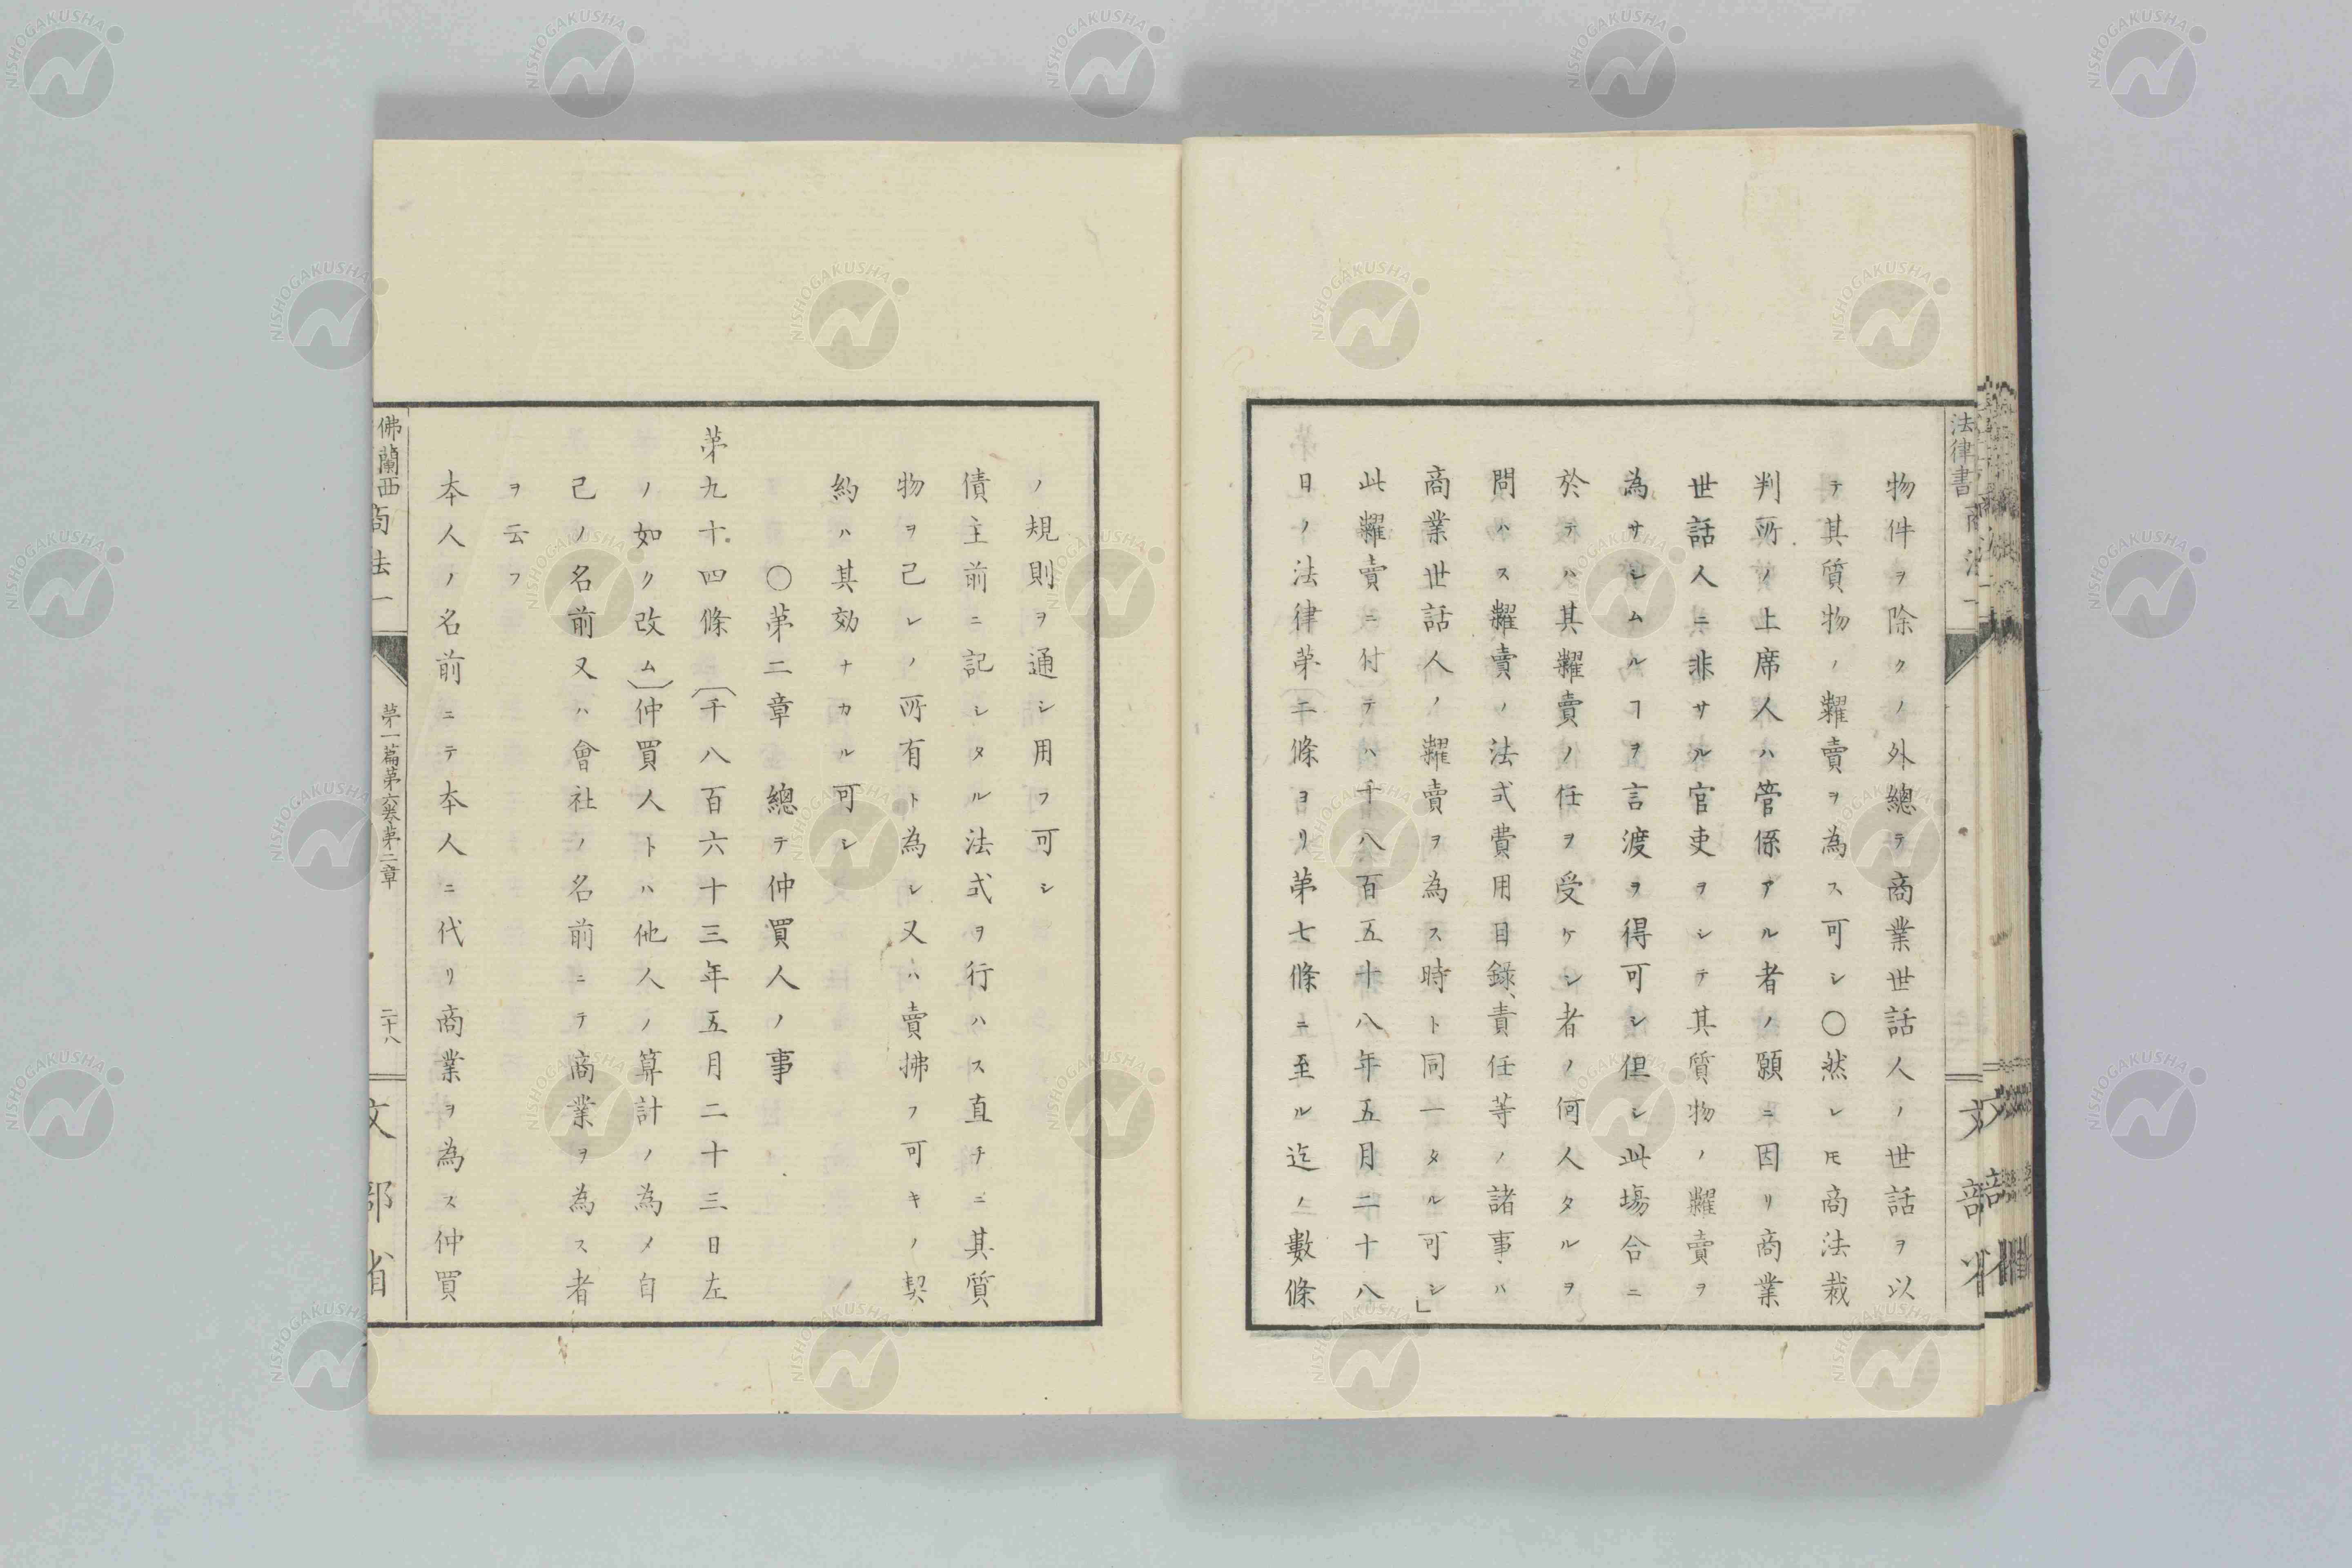 法律書 商法一
物件ヲ除クノ外總テ商業世話人ノ世話ヲ以
テ其質物ノ糶賣ヲ為ス可シ〇然レ𪜈商法裁
判所ノ上席人ハ管係アル者ノ願ニ因リ商業
世話人ニ非サル官吏ヲシテ其質物ノ糶賣ヲ
為サシムルヿヲ言渡ヲ得可シ但シ此塲合ニ
於テハ其糶賣ノ任ヲ受ケシ者ノ何人タルヲ
問ハス糶賣ノ法式費用目錄、責任等ノ諸事ハ
商業世話人ノ糶賣ヲ為ス時ト同一タル可シ」
此糶賣ニ付テハ千八百五十八年五月二十八
日ノ法律第二條ヨリ第七條ニ至ル迄ノ數條
文部省
ノ規則ヲ通シ用フ可シ
債主前ニ記シタル法式ヲ行ハス直チニ其質
物ヲ己レノ所有ト為シ又ハ賣拂フ可キノ契
約ハ其効ナカル可シ
〇第二章 總テ仲買人ノ事
第九十四條(千八百六十三年五月二十三日左
ノ如ク改ム)仲買人トハ他人ノ算計ノ為メ自
己ノ名前又ハ會社ノ名前ニテ商業ヲ為ス者
ヲ云フ
本人ノ名前ニテ本人ニ代リ商業ヲ為ス仲買
佛蘭西商法一
第一篇第六巻第二章
二十八
文部省
NISHOGAKUSHA